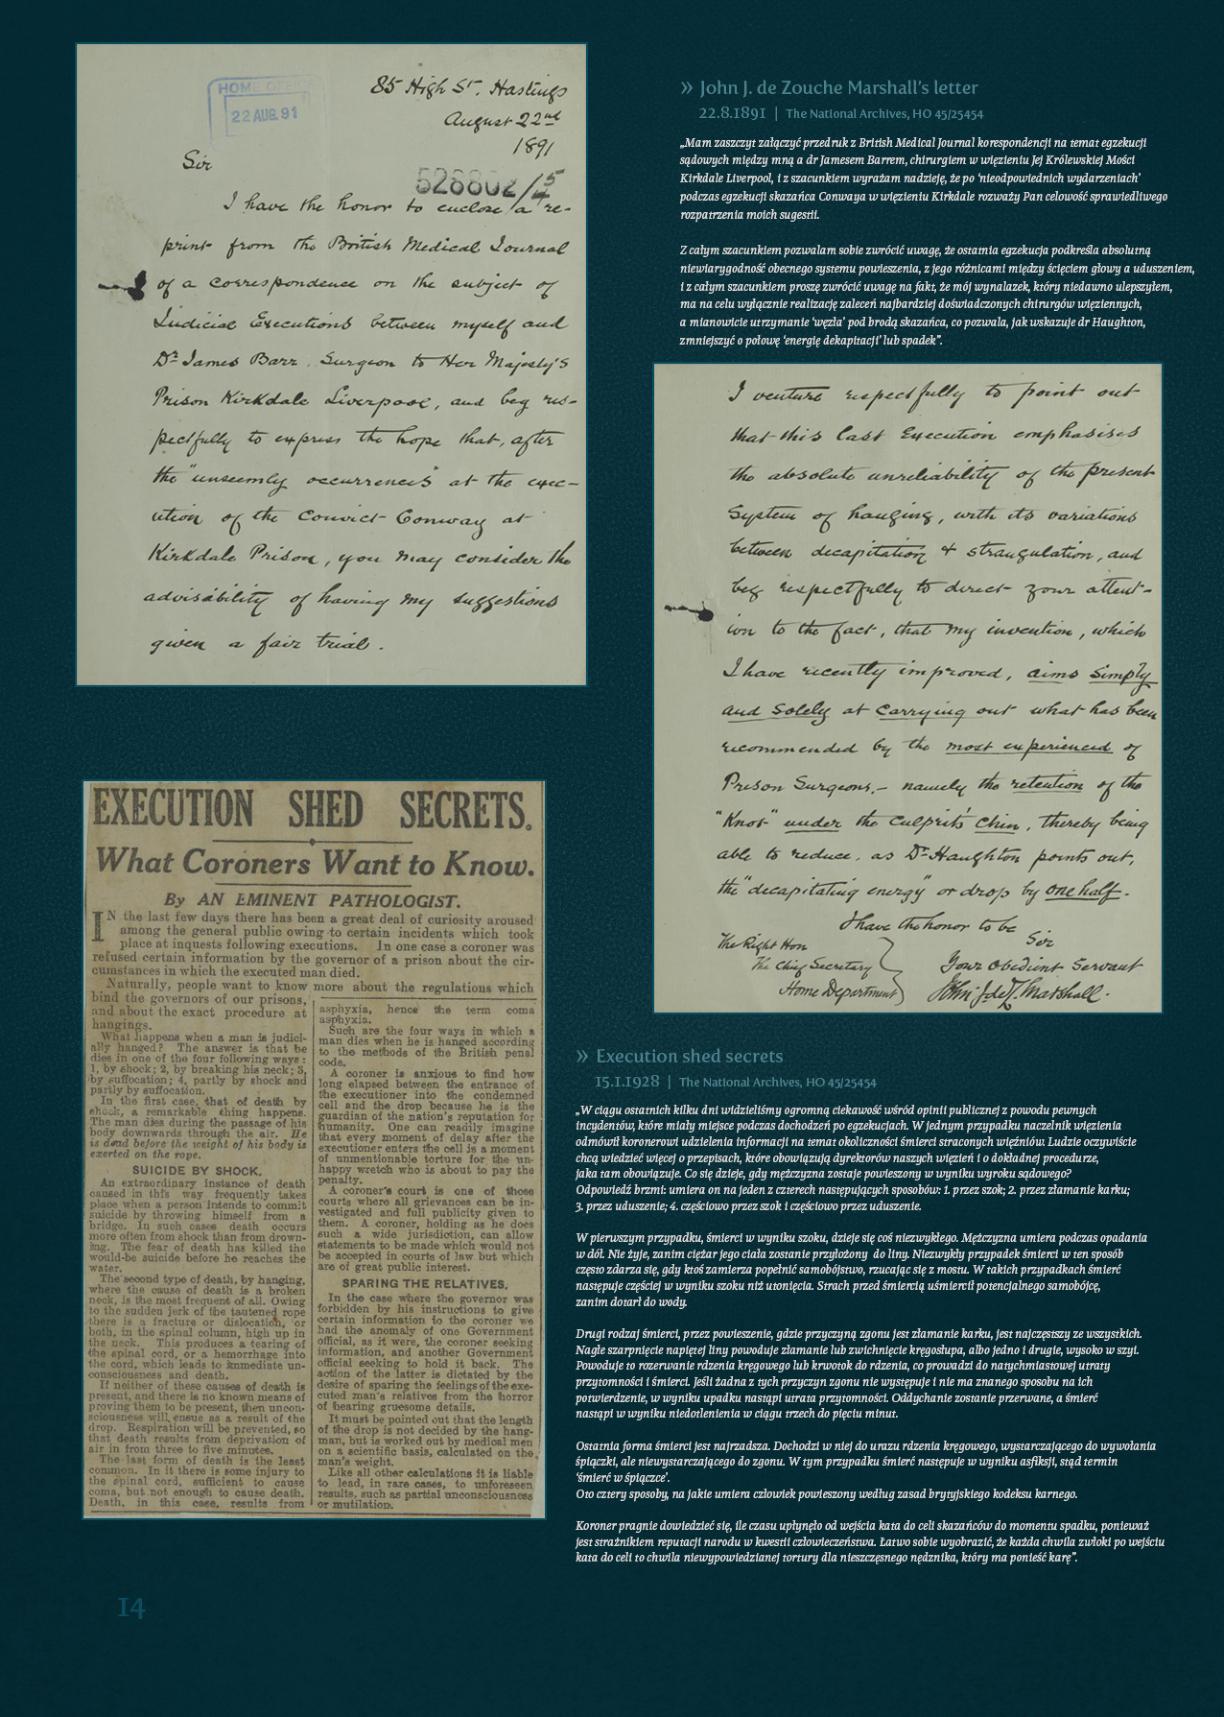 HOME OFFICE
22 AUG. 91
85 High St. Hastings
August 22nd
1891
Sir
526802/5
I have the honor to enclose a re-
print from the British Medical Journal
of a correspondence on the subject of
Judicial Executions between myself and
Dr. James Barr. Surgeon to Her Majesty's
Prison Kirkdale Liverpool, and beg res-
pectfully to express the hope that, after
the "unseemly occurrences" at the exec-
ution of the Convict Conway at
Kirkdale Prison, you may consider the
advisability of having my suggestions
given a fair trial.
» John J. de Zouche Marshall's letter
22.8.1891 | The National Archives, HO 45/25454
„Mam zaszczyt załączyć przedruk z British Medical Journal korespondencji na temat egzekucji
sądowych między mną a dr Jamesem Barrem, chirurgiem w więzieniu Jej Królewskiej Mości
Kirkdale Liverpool, i z szacunkiem wyrażam nadzieję, że po 'nieodpowiednich wydarzeniach'
podczas egzekucji skazańca Conwaya w więzieniu Kirkdale rozważy Pan celowość sprawiedliwego
rozpatrzenia moich sugestii.
Z całym szacunkiem pozwalam sobie zwrócić uwagę, że ostatnia egzekucja podkreśla absolutną
niewiarygodność obecnego systemu powieszenia, z jego różnicami między ścięciem głowy a uduszeniem,
i z całym szacunkiem proszę zwrócić uwagę na fakt, że mój wynalazek, który niedawno ulepszyłem,
ma na celu wyłącznie realizację zaleceń najbardziej doświadczonych chirurgów więziennych,
a mianowicie utrzymanie 'węzła' pod brodą skazańca, co pozwala, jak wskazuje dr Haughton,
zmniejszyć o połowę 'energię dekapitacji' lub spadek”.
I venture respectfully to point out
that this last Execution emphasises
the absolute unreliability of the present
System of hanging, with its variations
between decapitation & strangulation, and
beg respectfully to direct your attent-
ion to the fact, that my invention, which
I have recently improved, aims simply
and solely at carrying out what has been
recommended by the most experienced of
Prison Surgeons,- namely the retention of the
"Knot" under the Culprit's Chin, thereby being
able to reduce, as Dr. Haughton points out,
the "decapitating energy" or drop by one half.
I have the honor to be
Sir
Your Obedient Servant
John J. de Z. Marshall.
The Right Hon
The Chief Secretary
Home Department
EXECUTION SHED SECRETS.
What Coroners Want to Know.
By AN EMINENT PATHOLOGIST.
IN the last few days there has been a great deal of curiosity aroused
among the general public owing to certain incidents which took
place at inquests following executions. In one case a coroner was
refused certain information by the governor of a prison about the cir-
cumstances in which the executed man died.
Naturally, people want to know more about the regulations which
bind the governors of our prisons,
and about the exact procedure at
hangings.
What happens when a man is judici-
ally hanged? The answer is that he
dies in one of the four following ways:
1, by shock; 2, by breaking his neck; 3,
by suffocation; 4, partly by shock and
partly by suffocation.
In the first case, that of death by
shock, a remarkable thing happens.
The man dies during the passage of his
body downwards through the air. He
is dead before the weight of his body is
exerted on the rope.
SUICIDE BY SHOCK.
An extraordinary instance of death
caused in this way frequently takes
place when a person intends to commit
suicide by throwing himself from a
bridge. In such cases death occurs
more often from shock than from drown-
ing. The fear of death has killed the
would-be suicide before he reaches the
water.
The second type of death, by hanging,
where the cause of death is a broken
neck, is the most frequent of all. Owing
to the sudden jerk of the tautened rope
there is a fracture or dislocation, or
both, in the spinal column, high up in
the neck. This produces a tearing of
the spinal cord, or a hemorrhage into
the cord, which leads to immediate un-
consciousness and death.
If neither of these causes of death is
present, and there is no known means of
proving them to be present, then uncon-
sciousness will ensue as a result of the
drop. Respiration will be prevented, so
that death results from deprivation of
air in from three to five minutes.
The last form of death is the least
common. In it there is some injury to
the spinal cord, sufficient to cause
coma, but not enough to cause death.
Death, in this case, results from
asphyxia, hence the term coma
asphyxia.
Such are the four ways in which a
man dies when he is hanged according
to the methods of the British penal
code.
A coroner is anxious to find how
long elapsed between the entrance of
the executioner into the condemned
cell and the drop because he is the
guardian of the nation's reputation for
humanity. One can readily imagine
that every moment of delay after the
executioner enters the cell is a moment
of unmentionable torture for the un-
happy wretch who is about to pay the
penalty.
A coroner's court is one of those
courts where all grievances can be in-
vestigated and full publicity given to
them. A coroner, holding as he does
such a wide jurisdiction, can allow
statements to be made which would not
be accepted in courts of law but which
are of great public interest.
SPARING THE RELATIVES.
In the case where the governor was
forbidden by his instructions to give
certain information to the coroner we
had the anomaly of one Government
official, as it were, the coroner seeking
information, and another Government
official seeking to hold it back. The
action of the latter is dictated by the
desire of sparing the feelings of the exe-
cuted man's relatives from the horror
of hearing gruesome details.
It must be pointed out that the length
of the drop is not decided by the hang-
man, but is worked out by medical men
on a scientific basis, calculated on the
man's weight.
Like all other calculations it is liable
to lead, in rare cases, to unforeseen
results, such as partial unconsciousness
or mutilation.
» Execution shed secrets
15.1.1928 | The National Archives, HO 45/25454
„W ciągu ostatnich kilku dni widzieliśmy ogromną ciekawość wśród opinii publicznej z powodu pewnych
incydentów, które miały miejsce podczas dochodzeń po egzekucjach. W jednym przypadku naczelnik więzienia
odmówił koronerowi udzielenia informacji na temat okoliczności śmierci straconych więźniów. Ludzie oczywiście
chcą wiedzieć więcej o przepisach, które obowiązują dyrektorów naszych więzień i o dokładnej procedurze,
jaka tam obowiązuje. Co się dzieje, gdy mężczyzna zostaje powieszony w wyniku wyroku sądowego?
Odpowiedź brzmi: umiera on na jeden z czterech następujących sposobów: 1. przez szok; 2. przez złamanie karku;
3. przez uduszenie; 4. częściowo przez szok i częściowo przez uduszenie.
W pierwszym przypadku, śmierci w wyniku szoku, dzieje się coś niezwykłego. Mężczyzna umiera podczas opadania
w dół. Nie żyje, zanim ciężar jego ciała zostanie przyłożony do liny. Niezwykły przypadek śmierci w ten sposób
często zdarza się, gdy ktoś zamierza popełnić samobójstwo, rzucając się z mostu. W takich przypadkach śmierć
następuje częściej w wyniku szoku niż utonięcia. Strach przed śmiercią uśmiercił potencjalnego samobójcę,
zanim dotarł do wody.
Drugi rodzaj śmierci, przez powieszenie, gdzie przyczyną zgonu jest złamanie karku, jest najczęstszy ze wszystkich.
Nagłe szarpnięcie napiętej liny powoduje złamanie lub zwichnięcie kręgosłupa, albo jedno i drugie, wysoko w szyi.
Powoduje to rozerwanie rdzenia kręgowego lub krwotok do rdzenia, co prowadzi do natychmiastowej utraty
przytomności i śmierci. Jeśli żadna z tych przyczyn zgonu nie występuje i nie ma znanego sposobu na ich
potwierdzenie, w wyniku upadku nastąpi utrata przytomności. Oddychanie zostanie przerwane, a śmierć
nastąpi w wyniku niedotlenienia w ciągu trzech do pięciu minut.
Ostatnia forma śmierci jest najrzadsza. Dochodzi w niej do urazu rdzenia kręgowego, wystarczającego do wywołania
śpiączki, ale niewystarczającego do zgonu. W tym przypadku śmierć następuje w wyniku asfiksji, stąd termin
'śmierć w śpiączce'.
Oto cztery sposoby, na jakie umiera człowiek powieszony według zasad brytyjskiego kodeksu karnego.
Koroner pragnie dowiedzieć się, ile czasu upłynęło od wejścia kata do celi skazańców do momentu spadku, ponieważ
jest strażnikiem reputacji narodu w kwestii człowieczeństwa. Łatwo sobie wyobrazić, że każda chwila zwłoki po wejściu
kata do celi to chwila niewypowiedzianej tortury dla nieszczęsnego nędznika, który ma ponieść karę”.
14